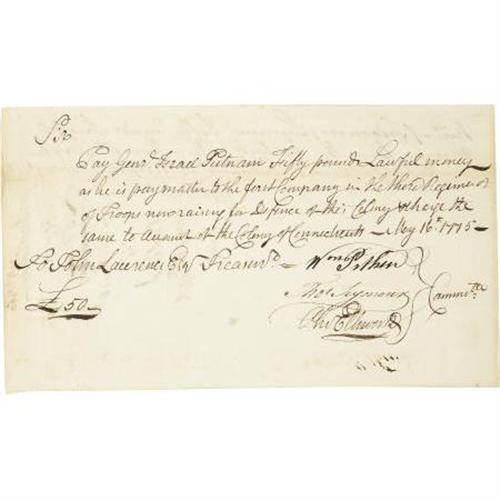 Sir
Pay Genl. Israel Putnam Fifty pounds Lawful money
as he is paymaster to the first Company in the third Regiment
of Troops now raising for Defence of this Colony & charge the
same to Account of the Colony of Connecticutt – May 16th. 1775 –
To John Lawrence Esqr Treasurr. – Wm Pitkin
Thos Seymour Committee
£50